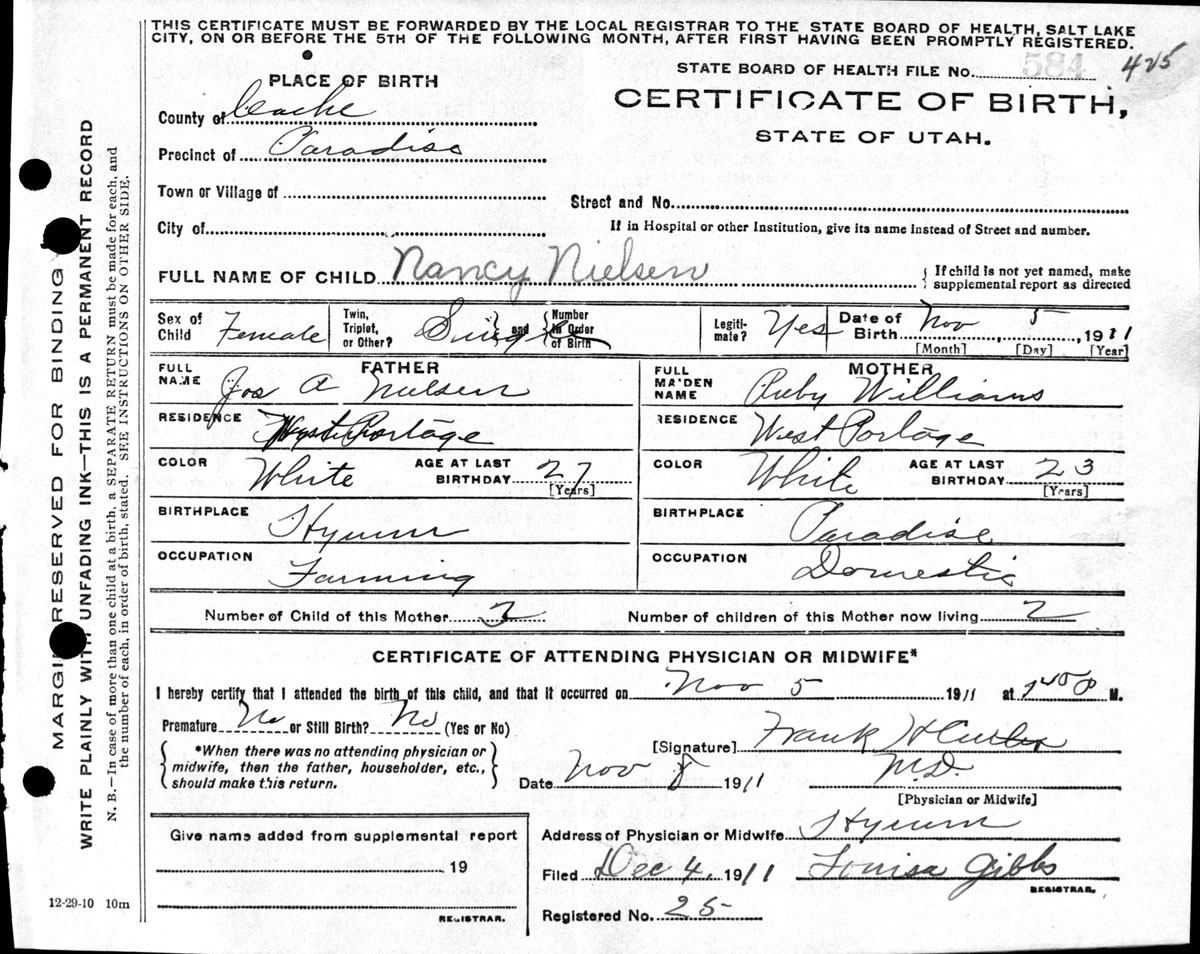 THIS CERTIFICATE MUST BE FORWARDED BY THE LOCAL REGISTRAR TO THE STATE BOARD OF HEALTH, SALT LAKE
CITY, ON OR BEFORE THE 5TH OF THE FOLLOWING MONTH, AFTER FIRST HAVING BEEN PROMPTLY REGISTERED.
STATE BOARD OF HEALTH FILE No. 584 425
PLACE OF BIRTH
CERTIFICATE OF BIRTH,
STATE OF UTAH.
County of Cache
Precinct of Paradise
Town or Village of
Street and No.
City of
If in Hospital or other Institution, give its name instead of Street and number.
FULL NAME OF CHILD Nancy Nielsen
If child is not yet named, make
supplemental report as directed
Sex of Child Female Twin, Triplet, or Other? Single and Number in Order of Birth Legiti- mate? Yes Date of Birth Nov 5, 1911
[Month] [Day] [Year]
FATHER MOTHER
FULL NAME Jos A Nielsen FULL MAIDEN NAME Ruby Williams
RESIDENCE West Portage RESIDENCE West Portage
COLOR White AGE AT LAST BIRTHDAY 27 [Years] COLOR White AGE AT LAST BIRTHDAY 23 [Years]
BIRTHPLACE Hyrum BIRTHPLACE Paradise
OCCUPATION Farming OCCUPATION Domestic
Number of Child of this Mother Number of children of this Mother now living 2
CERTIFICATE OF ATTENDING PHYSICIAN OR MIDWIFE*
I hereby certify that I attended the birth of this child, and that it occurred on Nov 5 1911 at P M.
Premature No or Still Birth? No (Yes or No)
*When there was no attending physician or
midwife, then the father, householder, etc.,
should make this return.
[Signature] Frank H
Date Nov 8 1911 M.D.
[Physician or Midwife]
Give name added from supplemental report
19
REGISTRAR.
Address of Physician or Midwife Hyrum
Filed Dec 4, 1911 Louisa Gibbs
REGISTRAR.
Registered No. 25
12-29-10 10m
MARGIN RESERVED FOR BINDING
WRITE PLAINLY WITH UNFADING INK—THIS IS A PERMANENT RECORD
N. B.—In case of more than one child at a birth, a SEPARATE RETURN must be made for each, and
the number of each, in order of birth, stated. SEE INSTRUCTIONS ON OTHER SIDE.